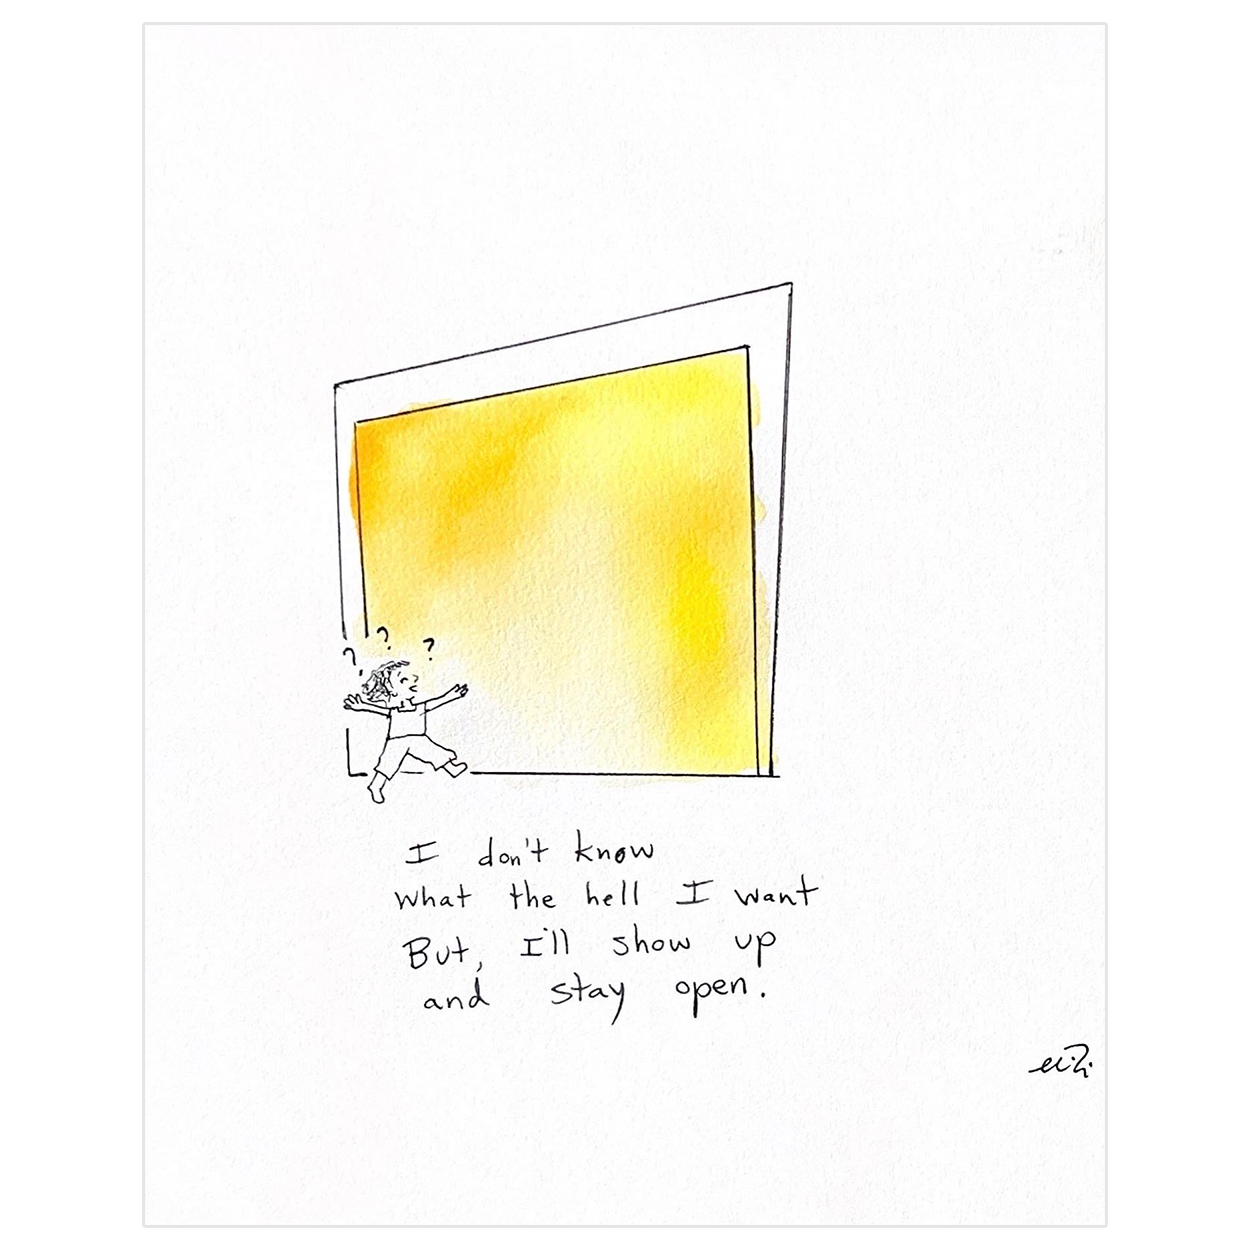 ? ? ?
I don't know
what the hell I want
But, I'll show up
and stay open.